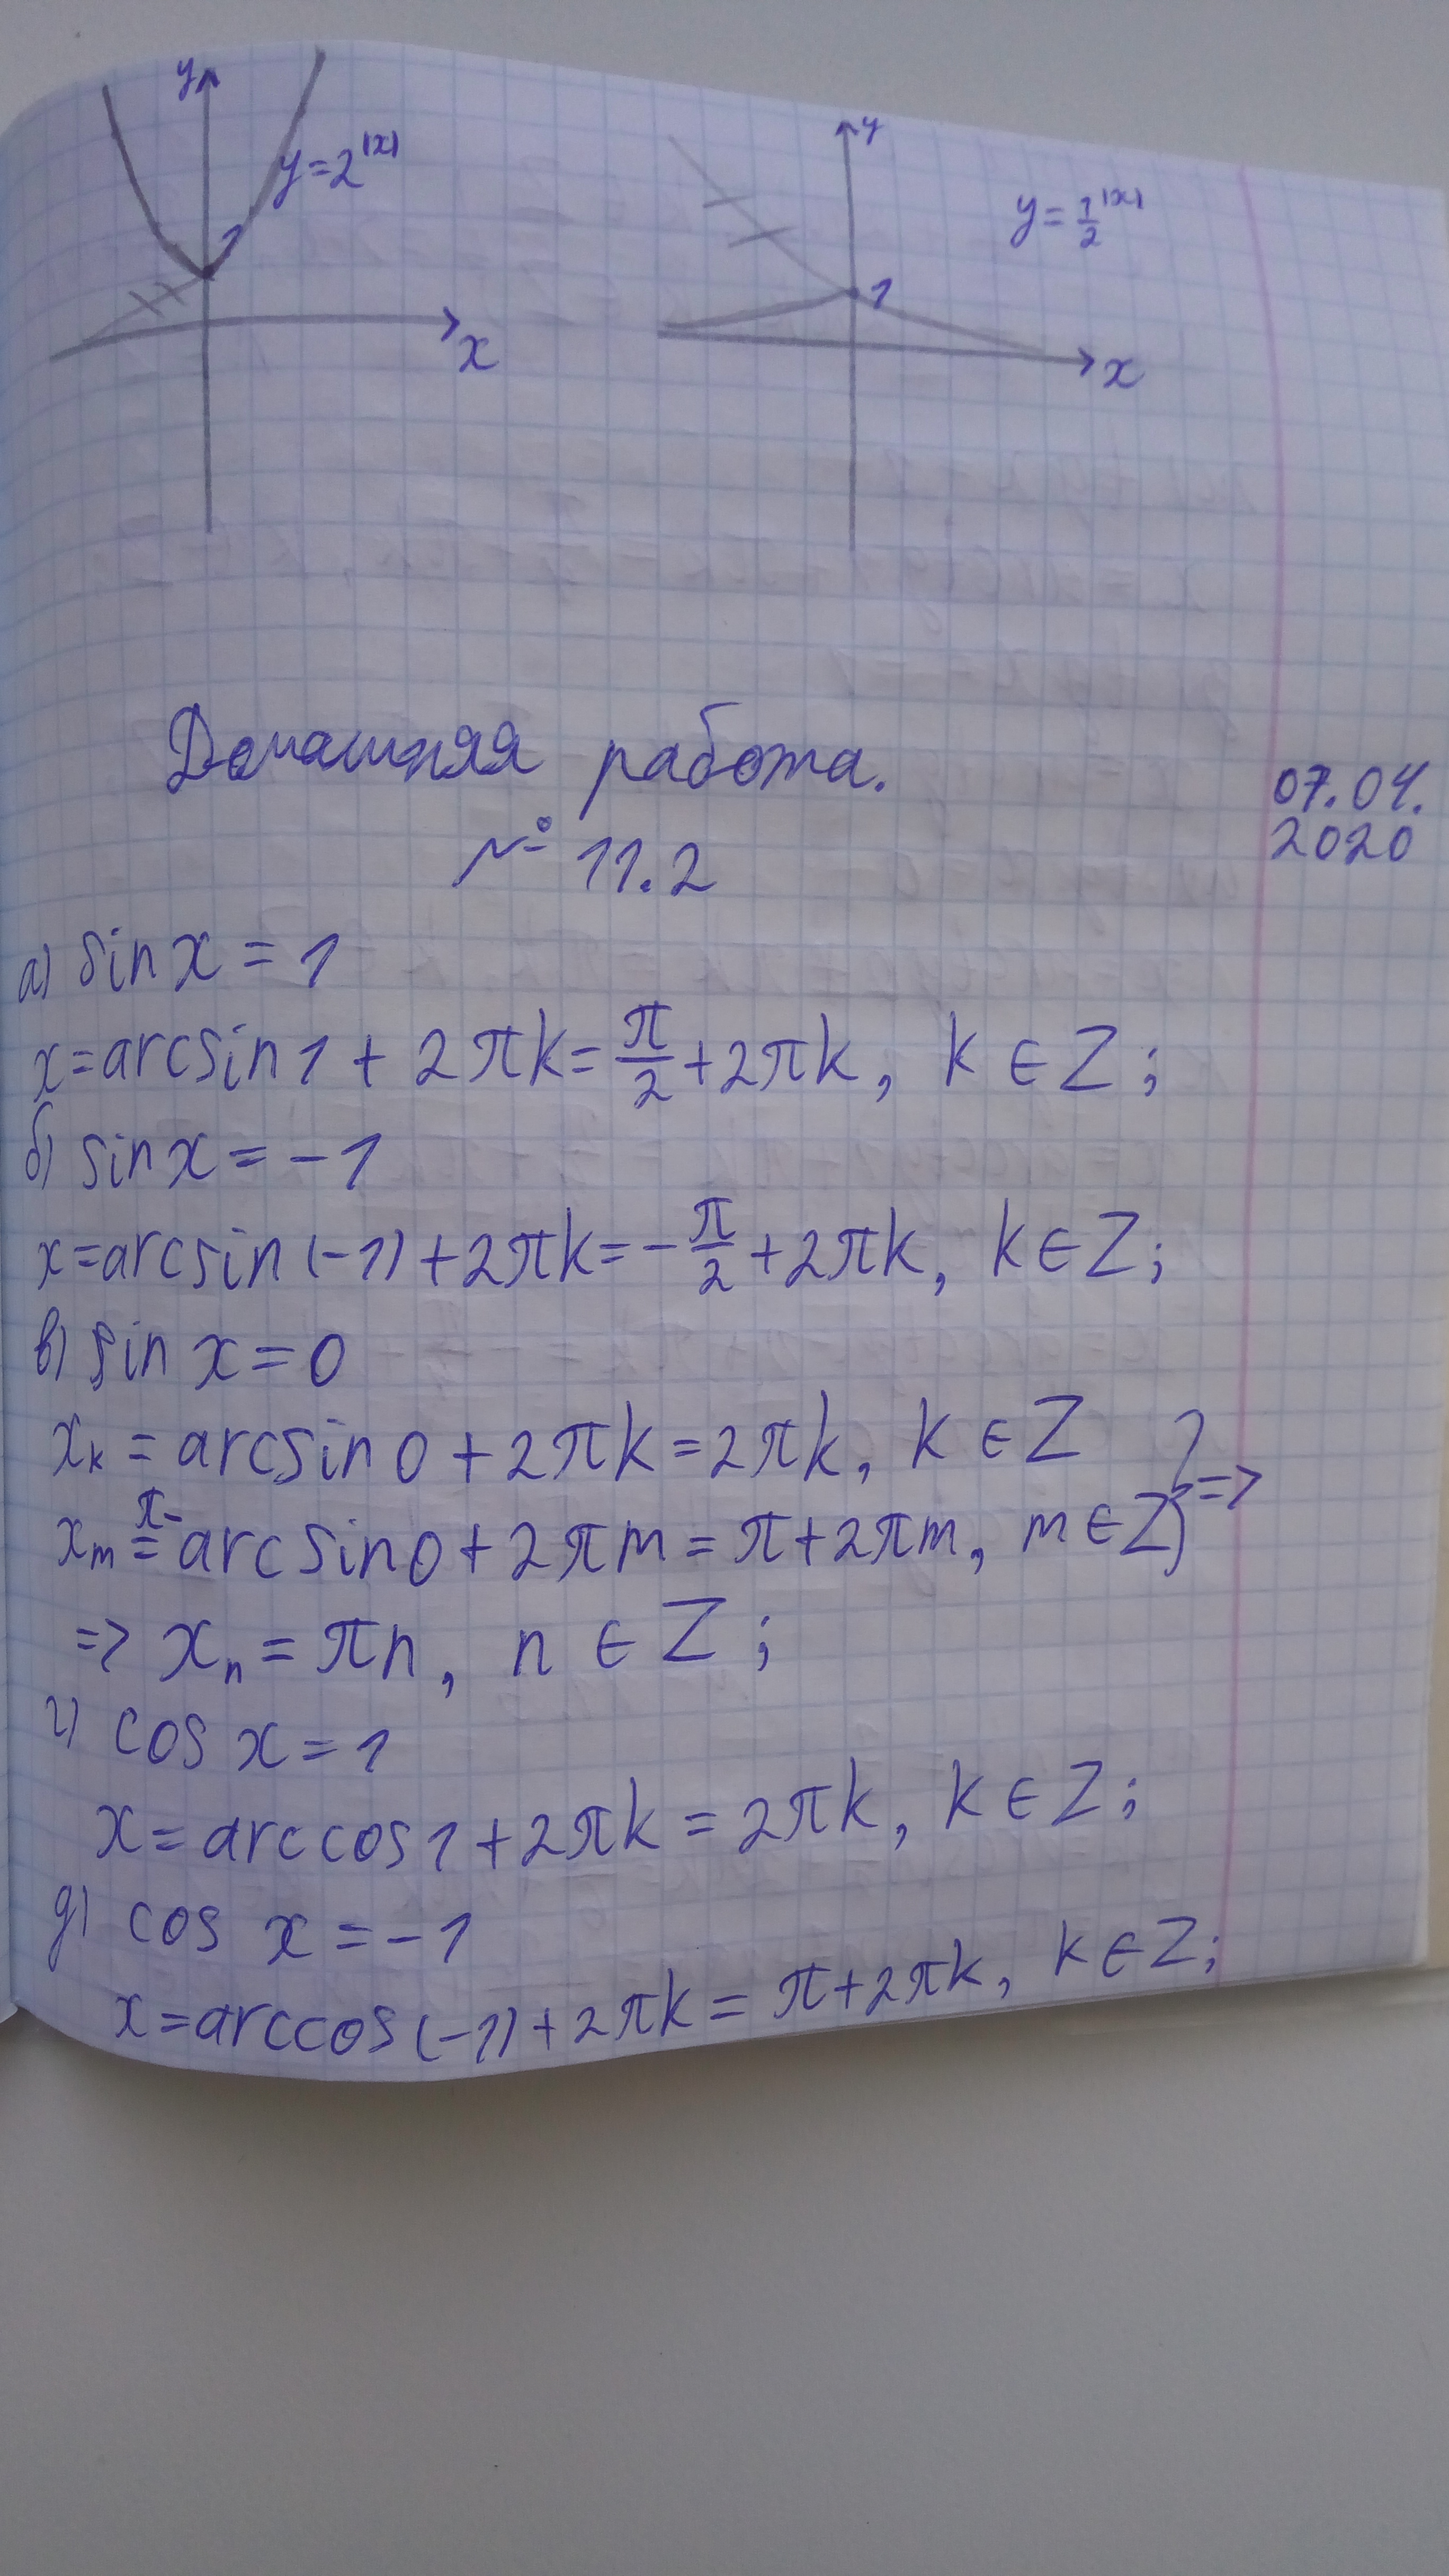 y
y=2^|x|
1
x
y
y=1/2^|x|
1
x
Домашняя работа.
07.04.
2020
№ 11.2
а) sin x = 1
x=arcsin1+2πk=π/2+2πk, k∈Z;
б) sin x = -1
x=arcsin(-1)+2πk=-π/2+2πk, k∈Z;
в) sin x = 0
xₖ = arcsin0+2πk=2πk, k∈Z } =>
xₘ = π-arcsin0+2πm=π+2πm, m∈Z
=> xₙ = πn, n∈Z;
г) cos x = 1
x=arccos1+2πk=2πk, k∈Z;
д) cos x = -1
x=arccos(-1)+2πk=π+2πk, k∈Z;